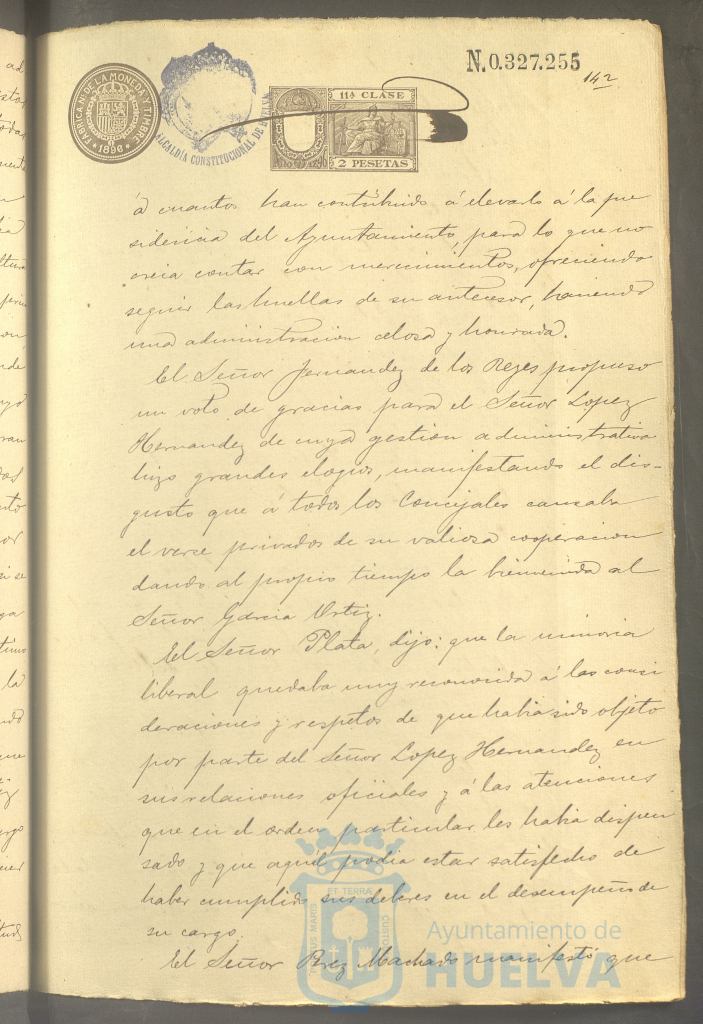 N.0.327.255
142
FABRICA NL DE LA MONEDA Y TIMBRE
1896
ALCALDÍA CONSTITUCIONAL DE HUELVA
11ª CLASE
2 PESETAS
á cuantos han contribuido á elevarlo á la pre
sidencia del Ayuntamiento, para lo que no
creia contar con merecimientos, ofreciendo
seguir las huellas de su antecesor, haciendo
una administracion celosa y honrada.
El Señor Fernandez de los Reyes propuso
un voto de gracias para el Señor Lopez
Hernandez de cuya gestion administrativa
hizo grandes elogios, manifestando el dis-
gusto que á todos los Concejales causaba
el verse privados de su valiosa cooperacion
dando al propio tiempo la bienvenida al
Señor Garcia Ortiz.
El Señor Plata, dijo: que la minoria
liberal quedaba muy reconocida á las consi
deraciones y respetos de que habia sido objeto
por parte del Señor Lopez Hernandez en
sus relaciones oficiales y á las atenciones
que en el orden particular les habia dispen
sado y que aquél podia estar satisfecho de
haber cumplido sus deberes en el desempeño de
su cargo.
El Señor Perez Machado manifestó que
PORTUS MARIS ET TERRAE CUSTODIA
Ayuntamiento de
HUELVA